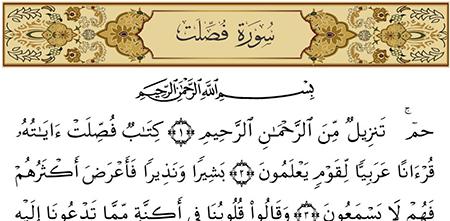 سُورَةُ فُصِّلَتْ
بِسْمِ ٱللَّهِ ٱلرَّحْمَٰنِ ٱلرَّحِيمِ
حمٓ ۚ تَنزِيلٌ مِّنَ ٱلرَّحْمَٰنِ ٱلرَّحِيمِ ﴿١﴾ كِتَٰبٌ فُصِّلَتْ ءَايَٰتُهُۥ
قُرْءَانًا عَرَبِيًّا لِّقَوْمٍ يَعْلَمُونَ ﴿٢﴾ بَشِيرًا وَنَذِيرًا فَأَعْرَضَ أَكْثَرُهُمْ
فَهُمْ لَا يَسْمَعُونَ ﴿٣﴾ وَقَالُوا۟ قُلُوبُنَا فِىٓ أَكِنَّةٍ مِّمَّا تَدْعُونَا إِلَيْهِ